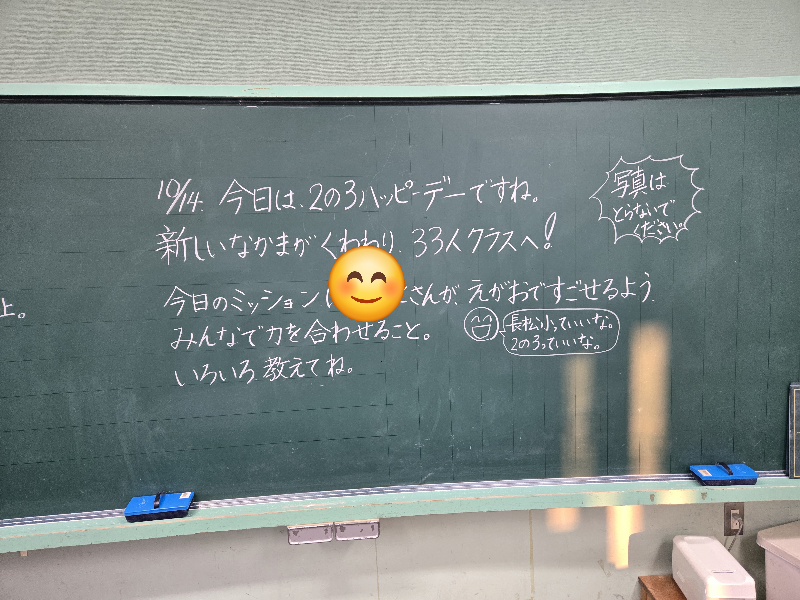 10/14. 今日は、2の3ハッピーデーですね。
新しいなかまがくわわり、33人クラスへ!
今日のミッション さんが、えがおですごせるよう
みんなで力を合わせること。
いろいろ教えてね。
長松小っていいな。
2の3っていいな。
写真は
とらないで
ください。
上。